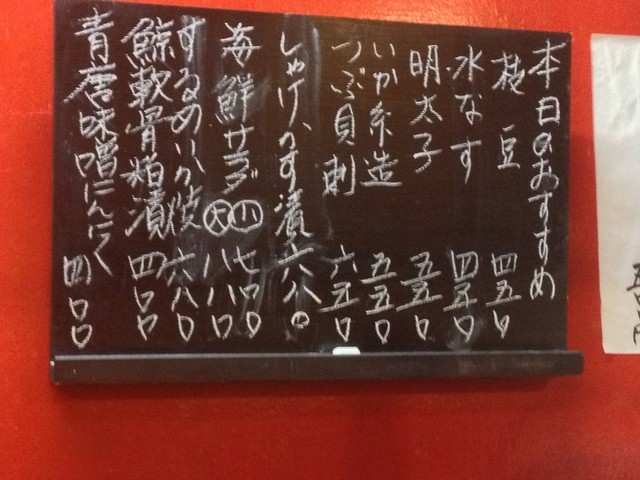 本日のおすすめ
枝豆 四五〇
水なす 四五〇
明太子 五五〇
いか糸造 五五〇
つぶ貝刺 六五〇
しゃけかす漬 六八〇
海鮮サラダ 小 七四〇
大 八八〇
するめいか焼 六八〇
鯨軟骨粕漬 四〇〇
青唐味噌にんにく 四〇〇